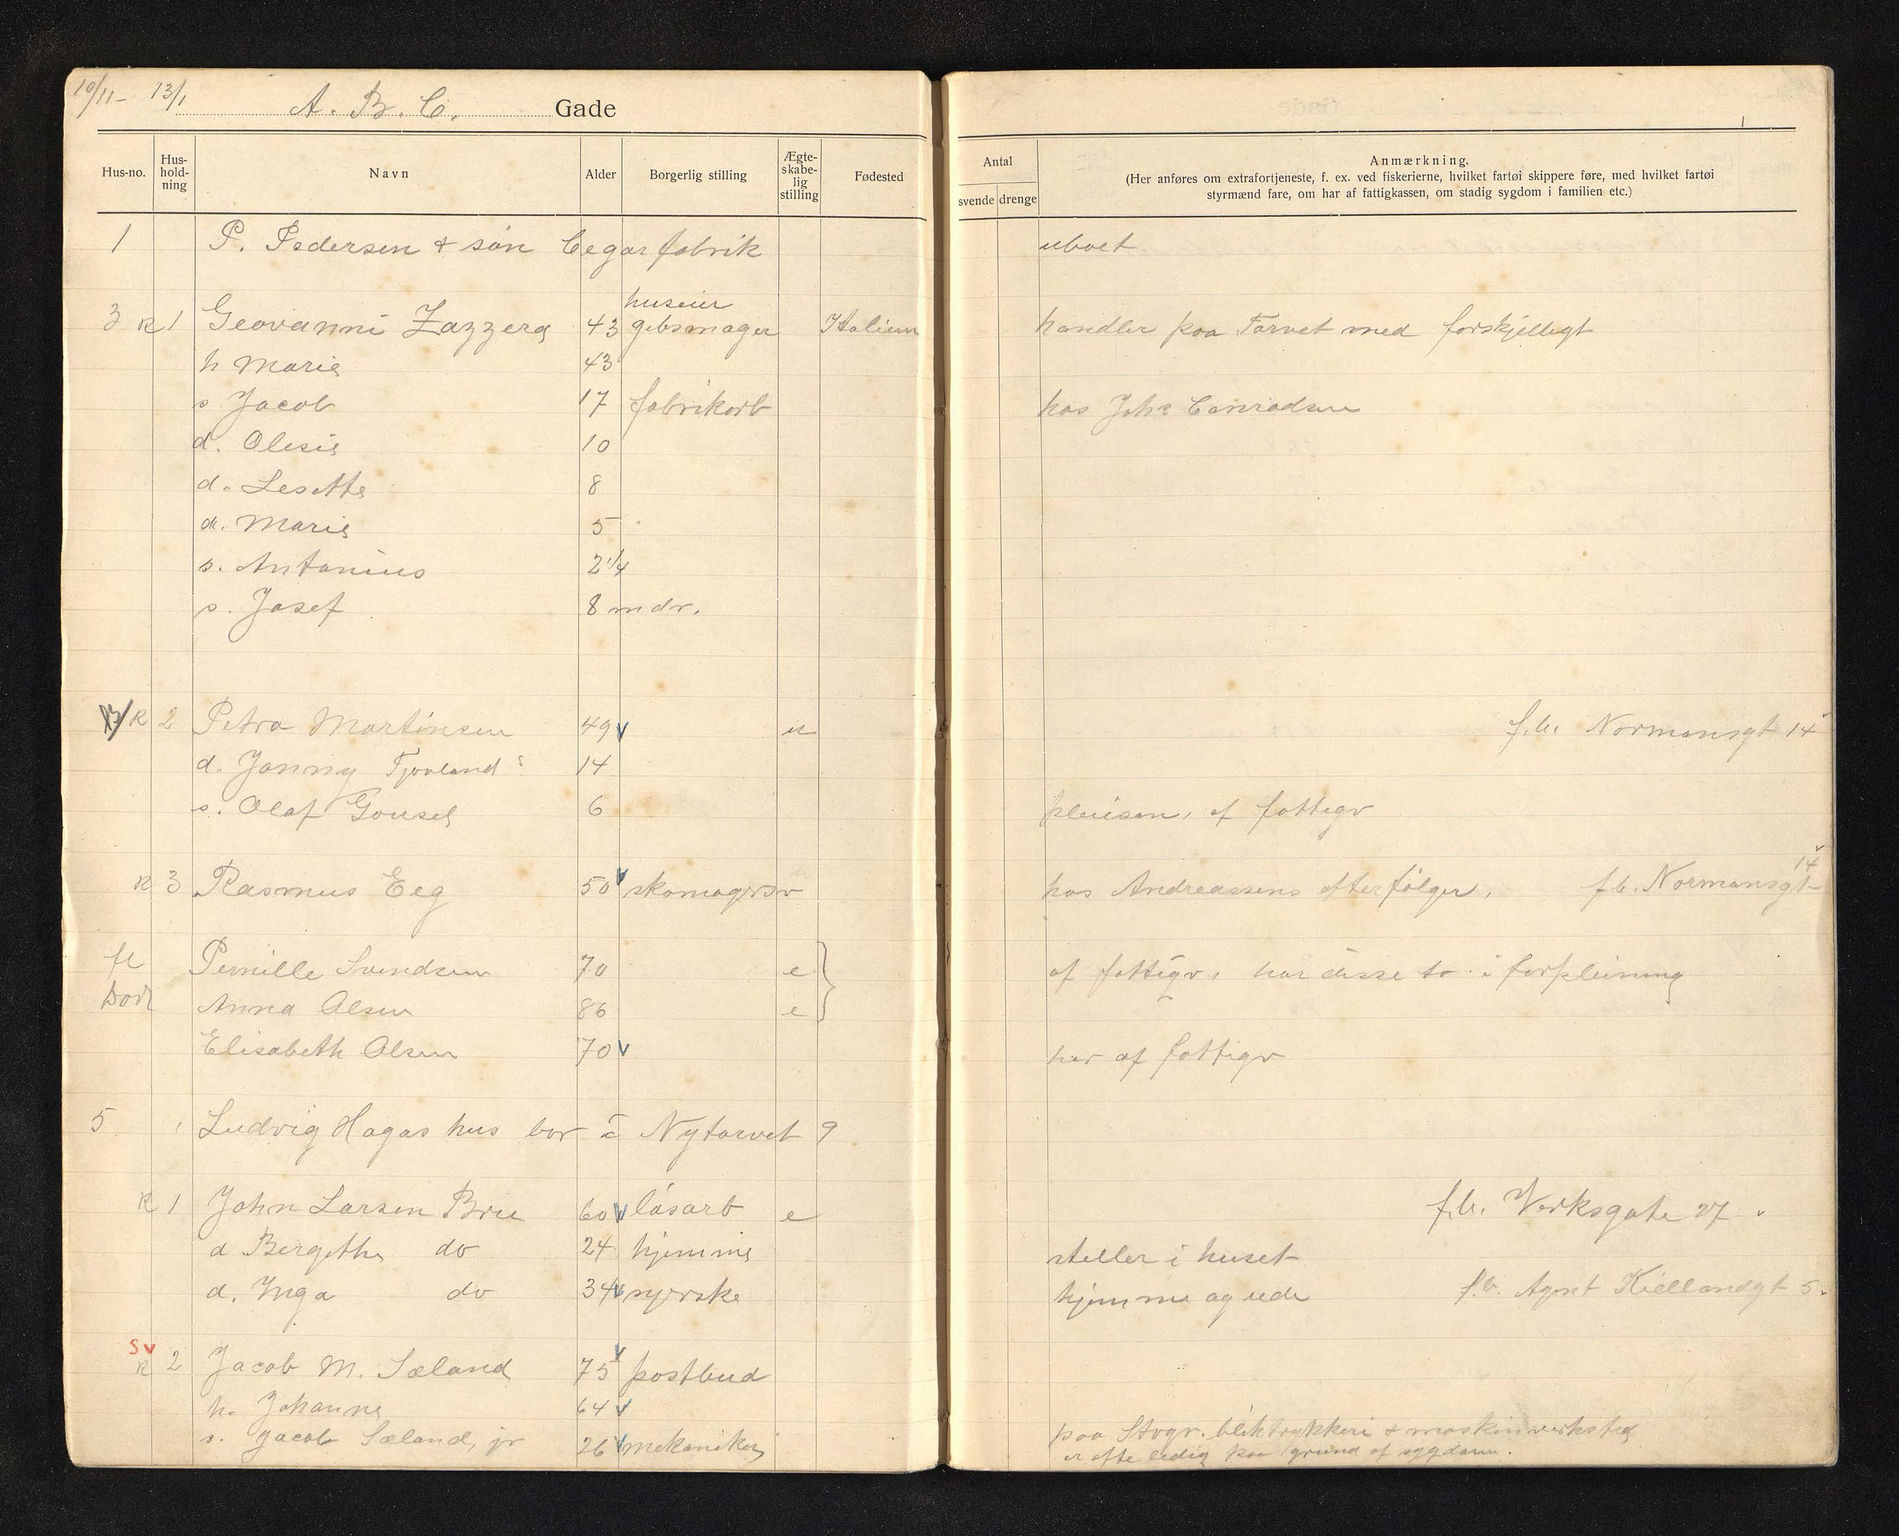 10/11- 13/1 A. B. C. Gade
1
Hus-no. Hus-hold-ning Navn Alder Borgerlig stilling Ægte-skabe-lig stilling Fødested Antal svende drenge Anmærkning.
(Her anføres om extrafortjeneste, f. ex. ved fiskerierne, hvilket fartøi skippere føre, med hvilket fartøi
styrmænd fare, om har af fattigkassen, om stadig sygdom i familien etc.)
1 P. Pedersen + søn Cegarfabrik uboet
huseier
3 R 1 Geovanni Zazzera 43 gibsmager Italien handler paa Torvet med forskjelligt
h Marie 43
s Jacob 17 fabrikarb hos Johs Conradsen
d. Olesie 10
d. Lesette 8
d. Marie 5
s. Antonius 2 1/4
s. Josef 8 mdr.
R 2 Petra Martinsen 49 v u f.b. Normansgt 14
d. Jonny Tjovland s 14
s. Olaf Gousel 6 pleiesøn, af fattigv
R 3 Rasmus Eeg 50 v skomagersv hos Andreassens efterfølger, f.b. Normansgt 14
fl Pernille Svendsen 70 e } af fattigv, har disse to i forpleining
Død Anna Olsen 86 e
Elisabeth Olsen 70 v har af fattigv
5 Ludvig Hagas hus bor i Nytorvet 9
R 1 John Larsen Bru 60 v løsarb e f.b. Verksgate 27
d Bergithe do 24 hjemme steller i huset
d. Inga do 34 v syerske hjemme og ude f.b. Agent Kiellandgt 5.
Sv
R 2 Jacob M. Sæland 75 v postbud
h. Johanne 64 v
s. Jacob Sæland, jr 26 v mekaniker paa Stvgr. bliktrykkeri + maskinverksted
er ofte ledig paa grund af sygdom.